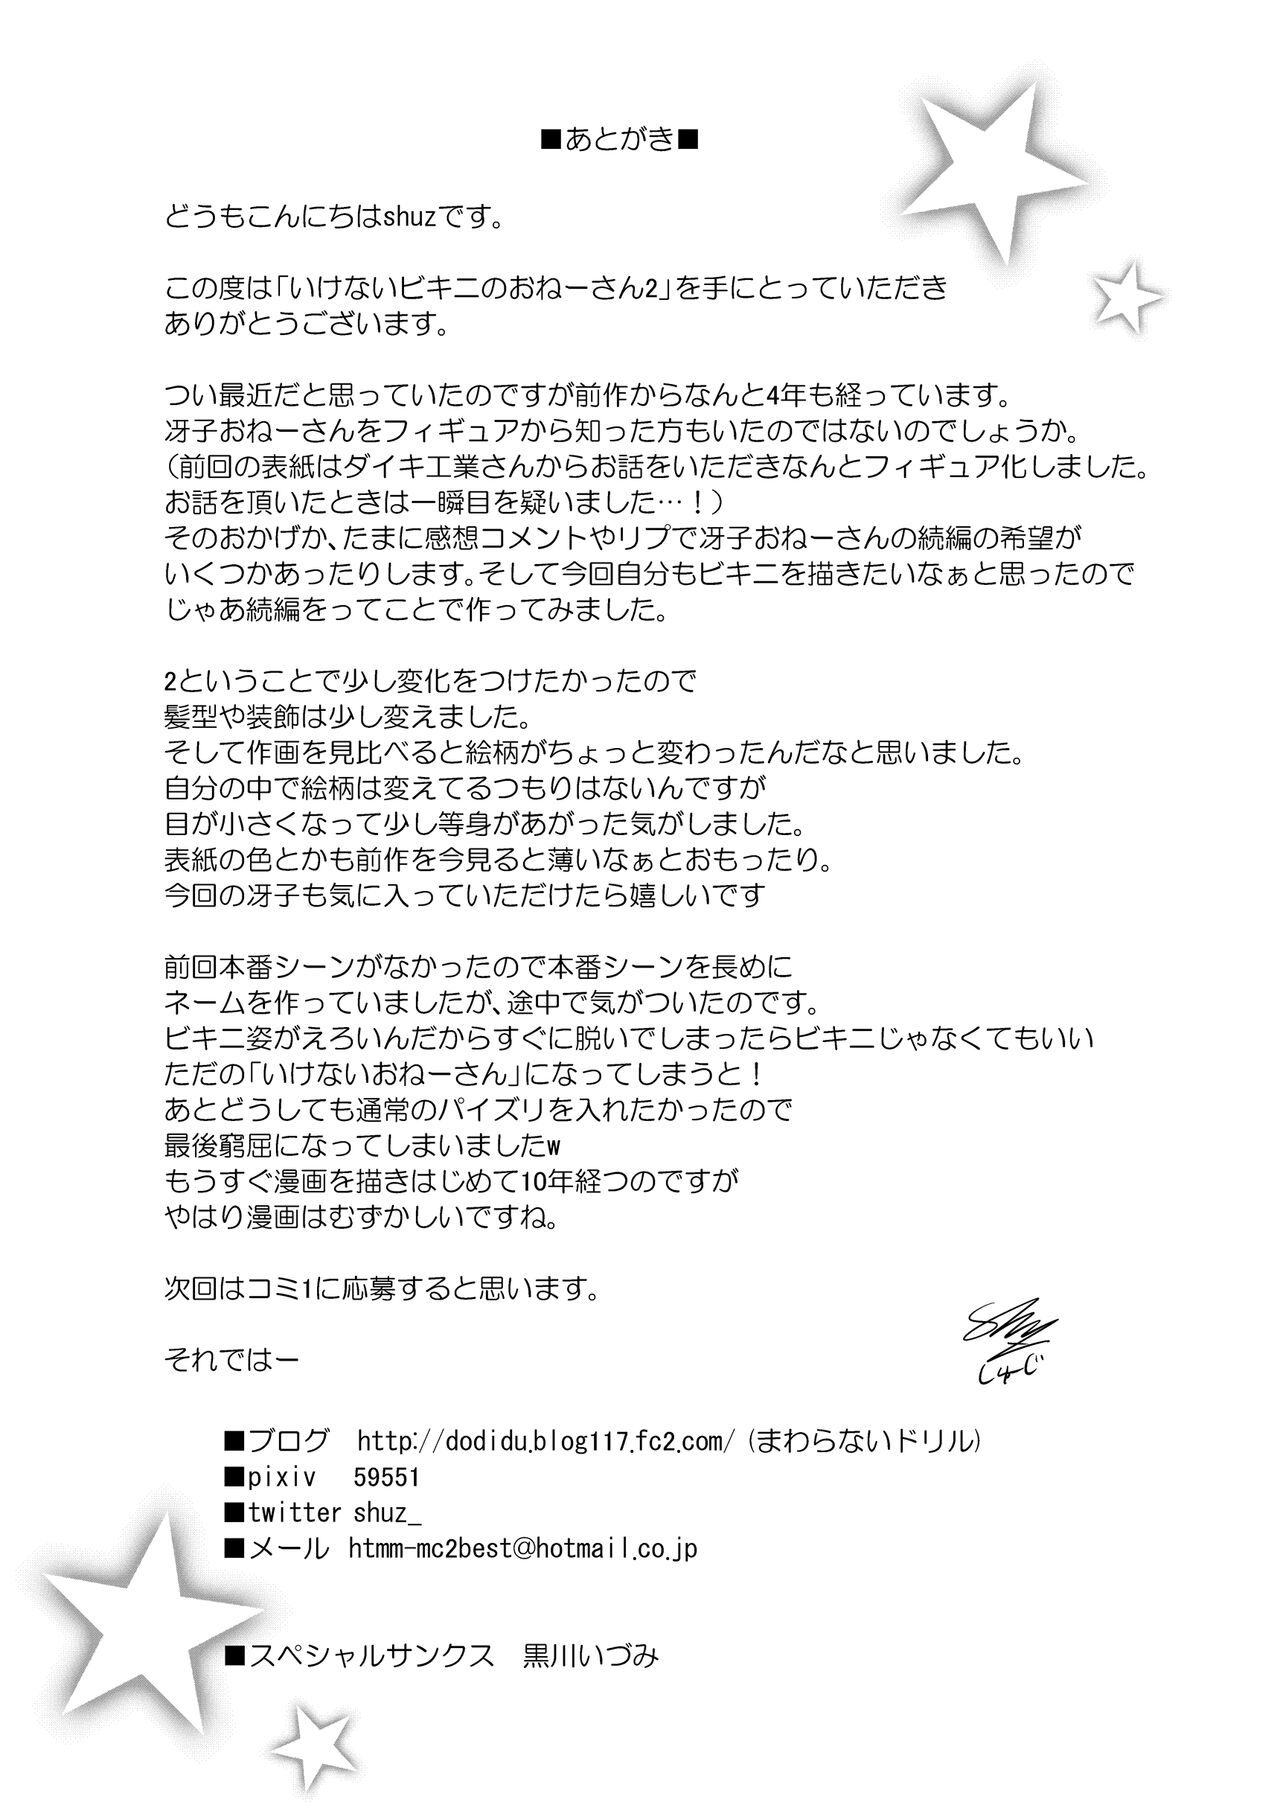 ■あとがき■
どうもこんにちはshuzです。
この度は「いけないビキニのおねーさん2」を手にとっていただき
ありがとうございます。
つい最近だと思っていたのですが前作からなんと4年も経っています。
冴子おねーさんをフィギュアから知った方もいたのではないのでしょうか。
（前回の表紙はダイキ工業さんからお話をいただきなんとフィギュア化しました。
お話を頂いたときは一瞬目を疑いました…！）
そのおかげか、たまに感想コメントやリプで冴子おねーさんの続編の希望が
いくつかあったりします。そして今回自分もビキニを描きたいなぁと思ったので
じゃあ続編をってことで作ってみました。
2ということで少し変化をつけたかったので
髪型や装飾は少し変えました。
そして作画を見比べると絵柄がちょっと変わったんだなと思いました。
自分の中で絵柄は変えてるつもりはないんですが
目が小さくなって少し等身があがった気がしました。
表紙の色とかも前作を今見ると薄いなぁとおもったり。
今回の冴子も気に入っていただけたら嬉しいです
前回本番シーンがなかったので本番シーンを長めに
ネームを作っていましたが、途中で気がついたのです。
ビキニ姿がえろいんだからすぐに脱いでしまったらビキニじゃなくてもいい
ただの「いけないおねーさん」になってしまうと！
あとどうしても通常のパイズリを入れたかったので
最後窮屈になってしまいましたw
もうすぐ漫画を描きはじめて10年経つのですが
やはり漫画はむずかしいですね。
次回はコミ1に応募すると思います。
それではー
shuz
しゅーじ
■ブログ　http://dodidu.blog117.fc2.com/ (まわらないドリル)
■pixiv　59551
■twitter shuz_
■メール　htmm-mc2best@hotmail.co.jp
■スペシャルサンクス　黒川いづみ